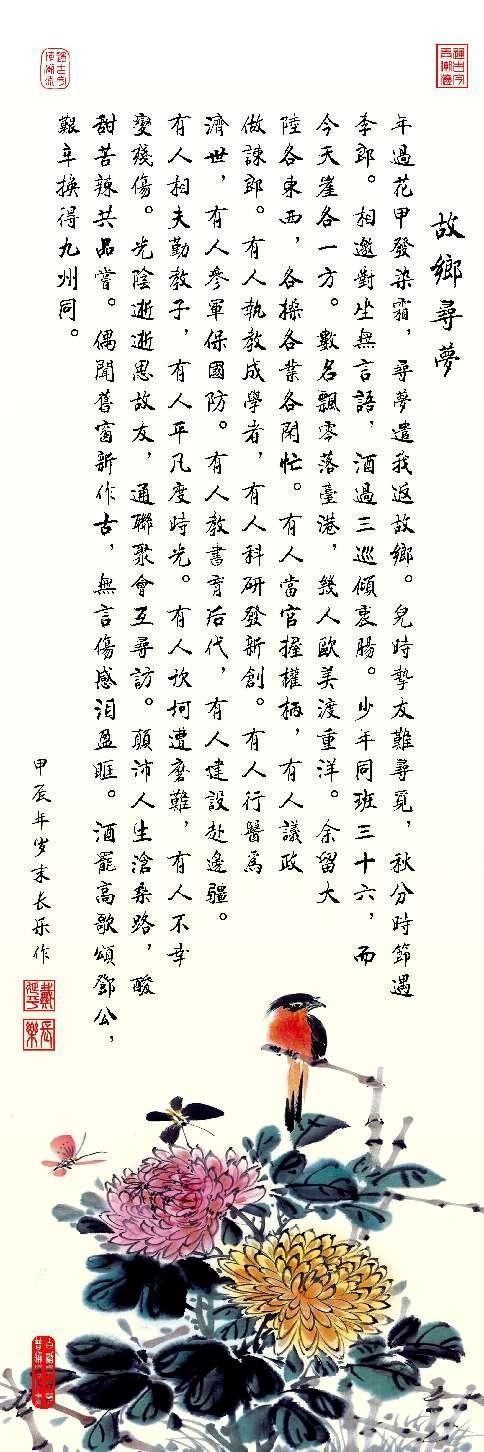 故鄉尋夢
年過花甲發染霜，尋夢遣我返故鄉。兒時摯友難尋覓，秋分時節遇
李郎。相邀對坐無言語，酒過三巡傾衷腸。少年同班三十六，而
今天崖各一方。數名飄零落臺港，幾人歐美渡重洋。余留大
陸各東西，各操各業各閑忙。有人當官握權柄，有人議政
做諫郎。有人執教成學者，有人科研發新創。有人行醫爲
濟世，有人參軍保國防。有人教書育后代，有人建設赴邊疆。
有人相夫勤教子，有人平凡度時光。有人坎坷遭磨難，有人不幸
變殘傷。光陰逝逝思故友，通聯聚會互尋訪。顛沛人生滄桑路，酸
甜苦辣共品嘗。偶聞舊窗新作古，無言傷感泪盈眶。酒罷高歌頌鄧公，
艱辛換得九州同。
甲辰年岁末长乐作